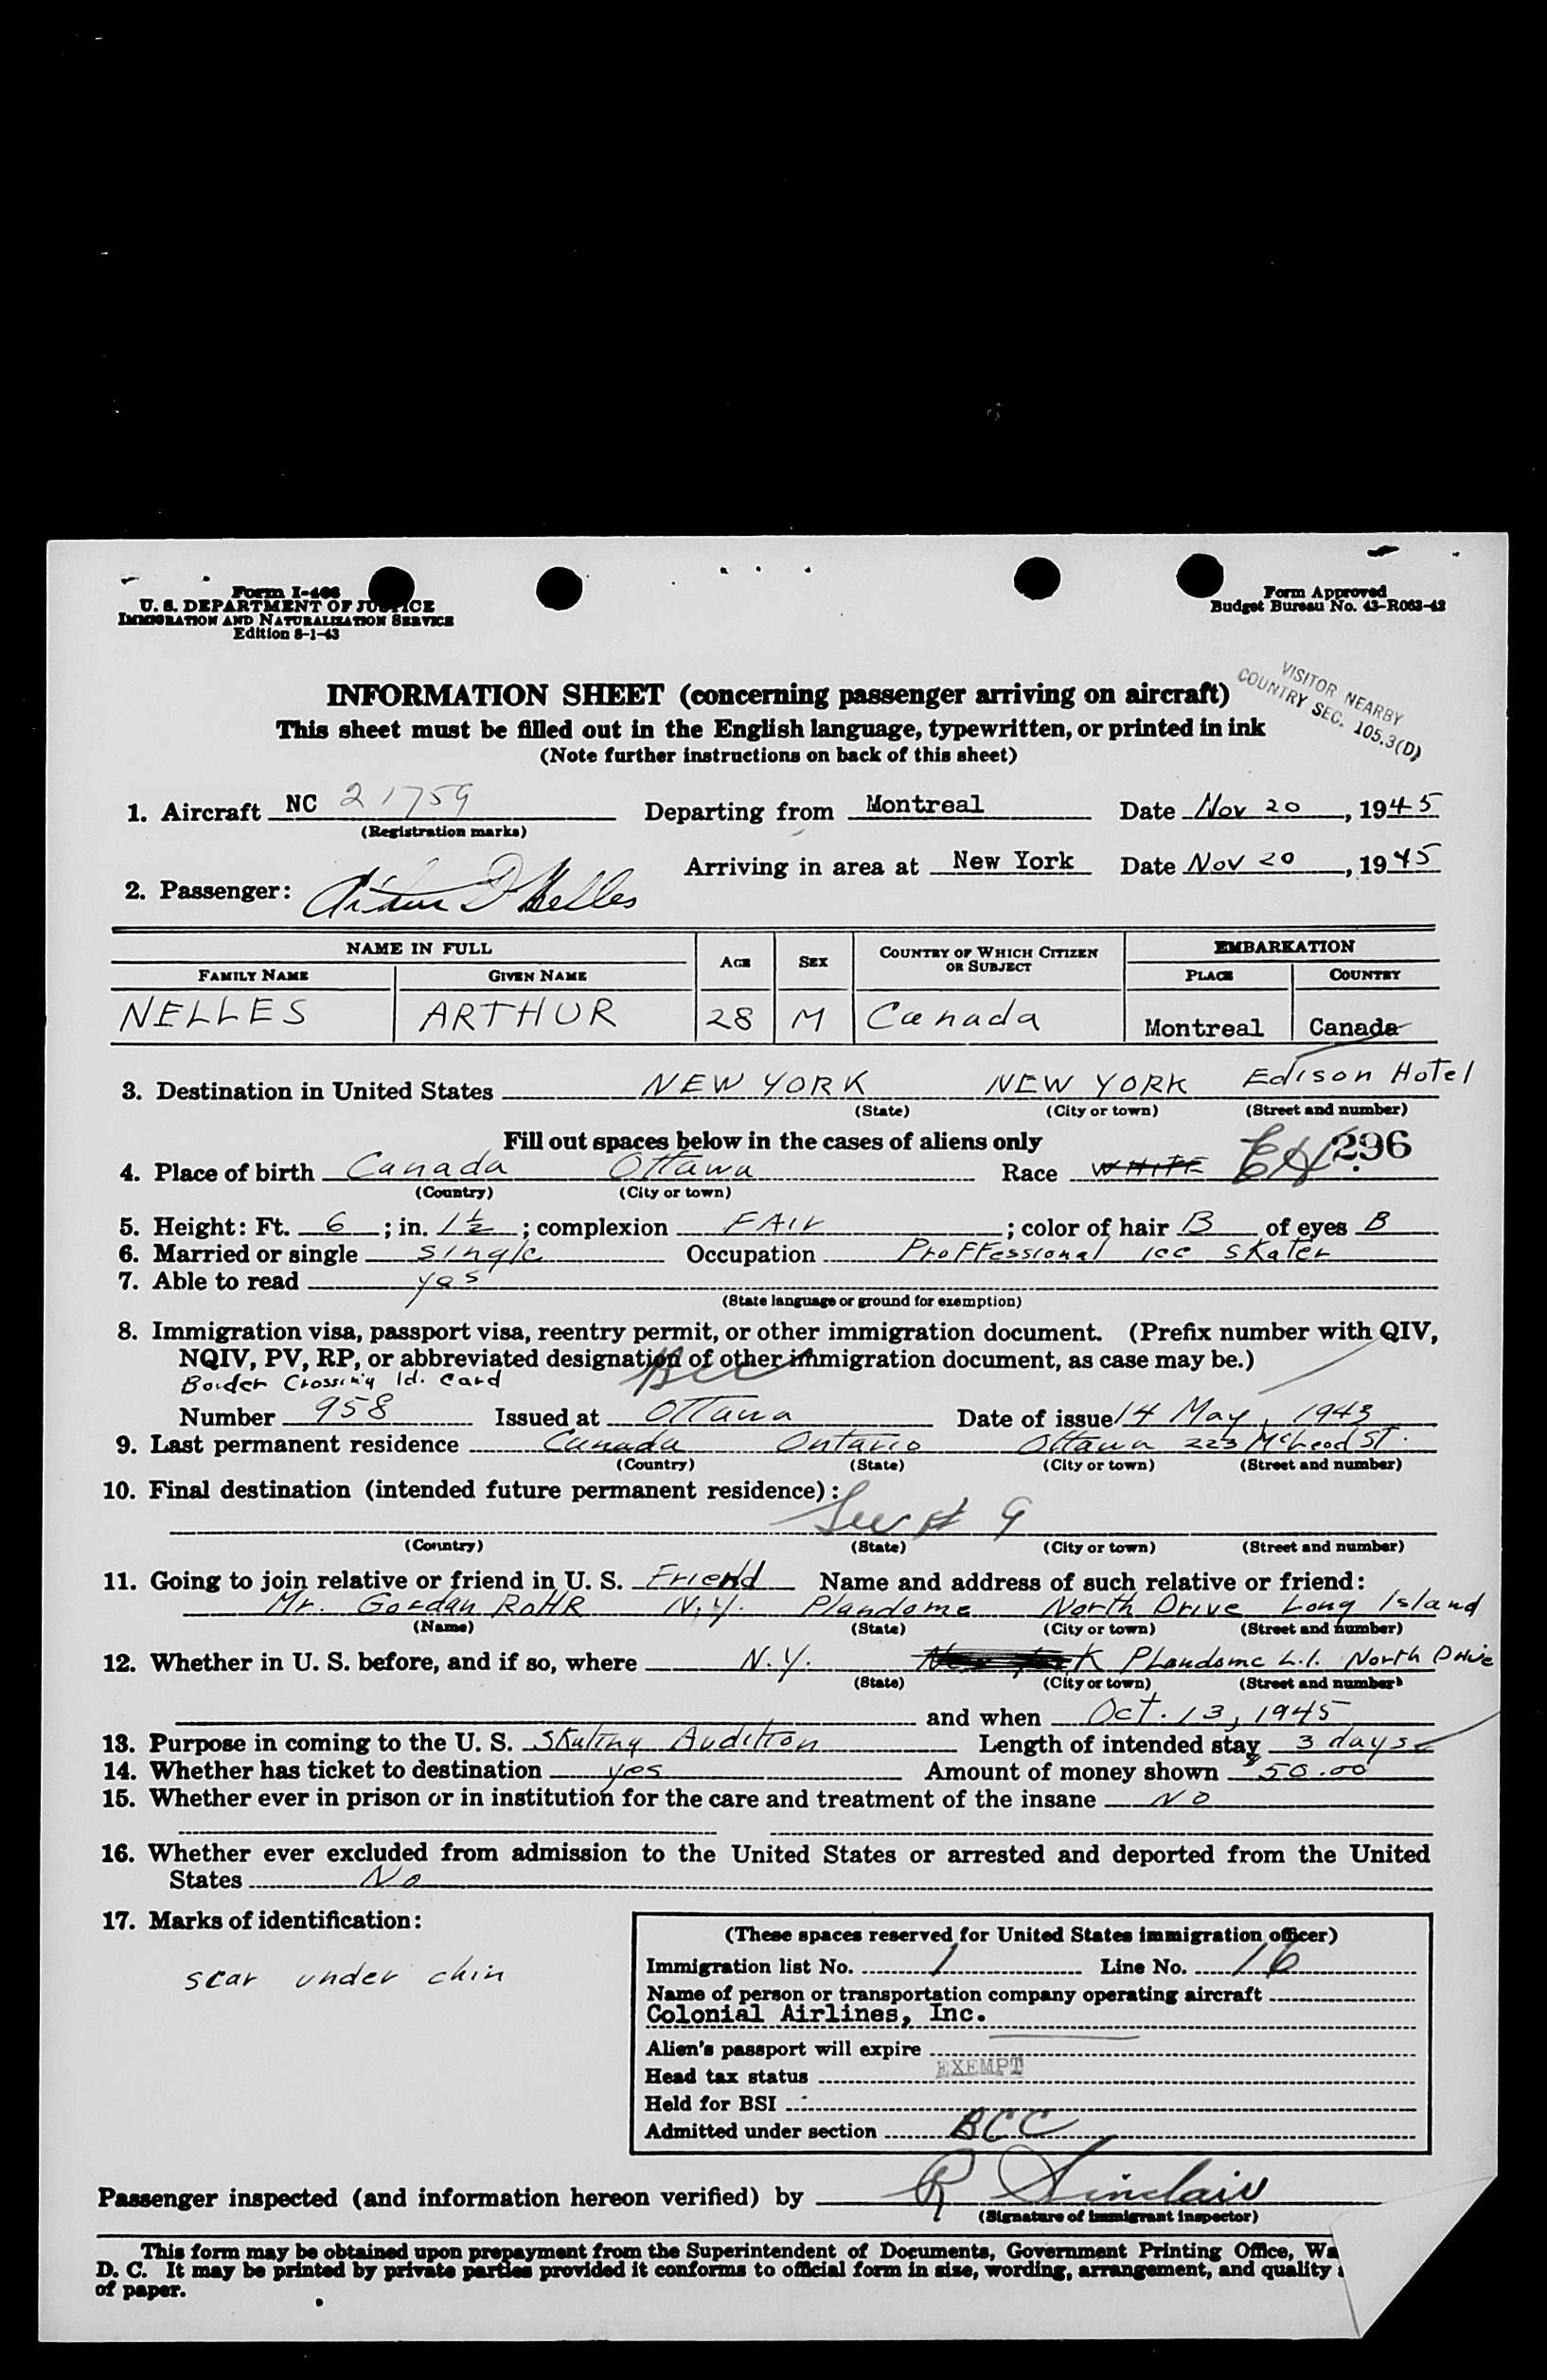 Form I-466
U. S. DEPARTMENT OF JUSTICE
IMMIGRATION AND NATURALIZATION SERVICE
Edition 8-1-43
Form Approved
Budget Bureau No. 43-R063-42
VISITOR NEARBY
COUNTRY SEC. 105.3(D)
INFORMATION SHEET (concerning passenger arriving on aircraft)
This sheet must be filled out in the English language, typewritten, or printed in ink
(Note further instructions on back of this sheet)
1. Aircraft NC 21759 Departing from Montreal Date Nov 20, 1945
(Registration marks)
Arriving in area at New York Date Nov 20, 1945
2. Passenger: Arthur D Nelles
NAME IN FULL AGE SEX COUNTRY OF WHICH CITIZEN OR SUBJECT EMBARKATION
FAMILY NAME GIVEN NAME PLACE COUNTRY
NELLES ARTHUR 28 M Canada Montreal Canada
3. Destination in United States NEW YORK NEW YORK Edison HoTel
(State) (City or town) (Street and number)
Fill out spaces below in the cases of aliens only
296
4. Place of birth Canada Ottawa Race WHITE EH
(Country) (City or town)
5. Height: Ft. 6; in. 1½; complexion FAIr; color of hair B of eyes B
6. Married or single single Occupation ProFFessional ice skater
7. Able to read yes
(State language or ground for exemption)
8. Immigration visa, passport visa, reentry permit, or other immigration document. (Prefix number with QIV,
NQIV, PV, RP, or abbreviated designation of other immigration document, as case may be.)
Border Crossing Id. Card BCC
Number 958 Issued at OTTawa Date of issue 14 May, 1943
9. Last permanent residence Canada Ontario Ottawa 223 McLeod ST.
(Country) (State) (City or town) (Street and number)
10. Final destination (intended future permanent residence):
See # 9
(Country) (State) (City or town) (Street and number)
11. Going to join relative or friend in U. S. Friend Name and address of such relative or friend:
Mr. Gordan RoHR N.Y. Plandome North Drive Long Island
(Name) (State) (City or town) (Street and number)
12. Whether in U. S. before, and if so, where N.Y. PLandome L.I. North Drive
(State) (City or town) (Street and number)
and when Oct. 13, 1945
13. Purpose in coming to the U. S. Skating Audition Length of intended stay 3 days
14. Whether has ticket to destination yes Amount of money shown $50.00
15. Whether ever in prison or in institution for the care and treatment of the insane NO
16. Whether ever excluded from admission to the United States or arrested and deported from the United
States No
17. Marks of identification:
scar under chin
(These spaces reserved for United States immigration officer)
Immigration list No. 1 Line No. 16
Name of person or transportation company operating aircraft
Colonial Airlines, Inc.
Alien's passport will expire
Head tax status EXEMPT
Held for BSI
Admitted under section BCC
Passenger inspected (and information hereon verified) by R Sinclair
(Signature of immigrant inspector)
This form may be obtained upon prepayment from the Superintendent of Documents, Government Printing Office, Wa
D. C. It may be printed by private parties provided it conforms to official form in size, wording, arrangement, and quality
of paper.